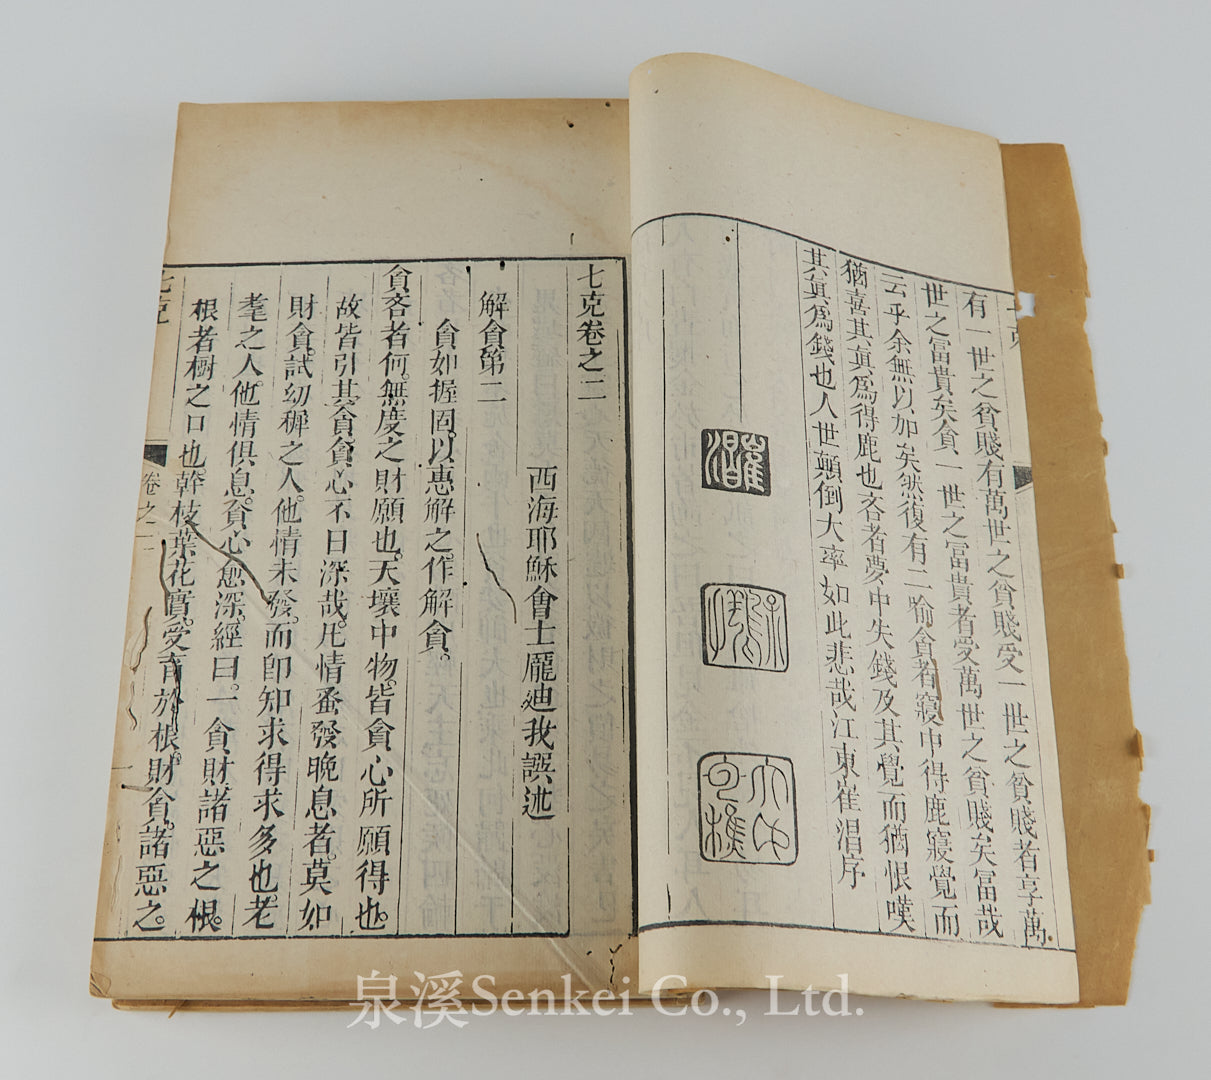 有一世之貧賤有萬世之貧賤受一世之貧賤者享萬
世之富貴矣貪一世之富貴者受萬世之貧賤矣富哉
云乎余無以加矣然復有二喻貪者寢中得鹿寢覺而
猶喜其眞爲得鹿也吝者夢中失錢及其覺而猶恨嘆
其眞爲錢也人世顛倒大率如此悲哉江東崔淐序
崔淐
七克卷之二
西海耶穌會士龐迪我譔述
解貪第二
貪如握固。以惠解之。作解貪。
貪吝者何。無度之財願也。天壤中物。皆貪心所願得也。
故皆引其貪。貪心不日深哉。凡情蚤發晚息者。莫如
財貪。試幼穉之人。他情未發。而卽知求得求多也。老
耄之人。他情俱息。貪心愈深。經曰。一貪財諸惡之根。
根者樹之口也。幹枝葉花實。受育於根。財貪。諸惡之。
七克
卷之二
泉溪Senkei Co., Ltd.